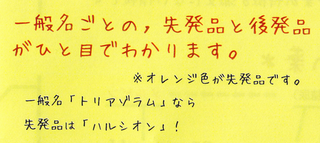 一般名ごとの，先発品と後発品
がひと目でわかります。
※オレンジ色が先発品です。
一般名「トリアゾラム」なら
先発品は「ハルシオン」！